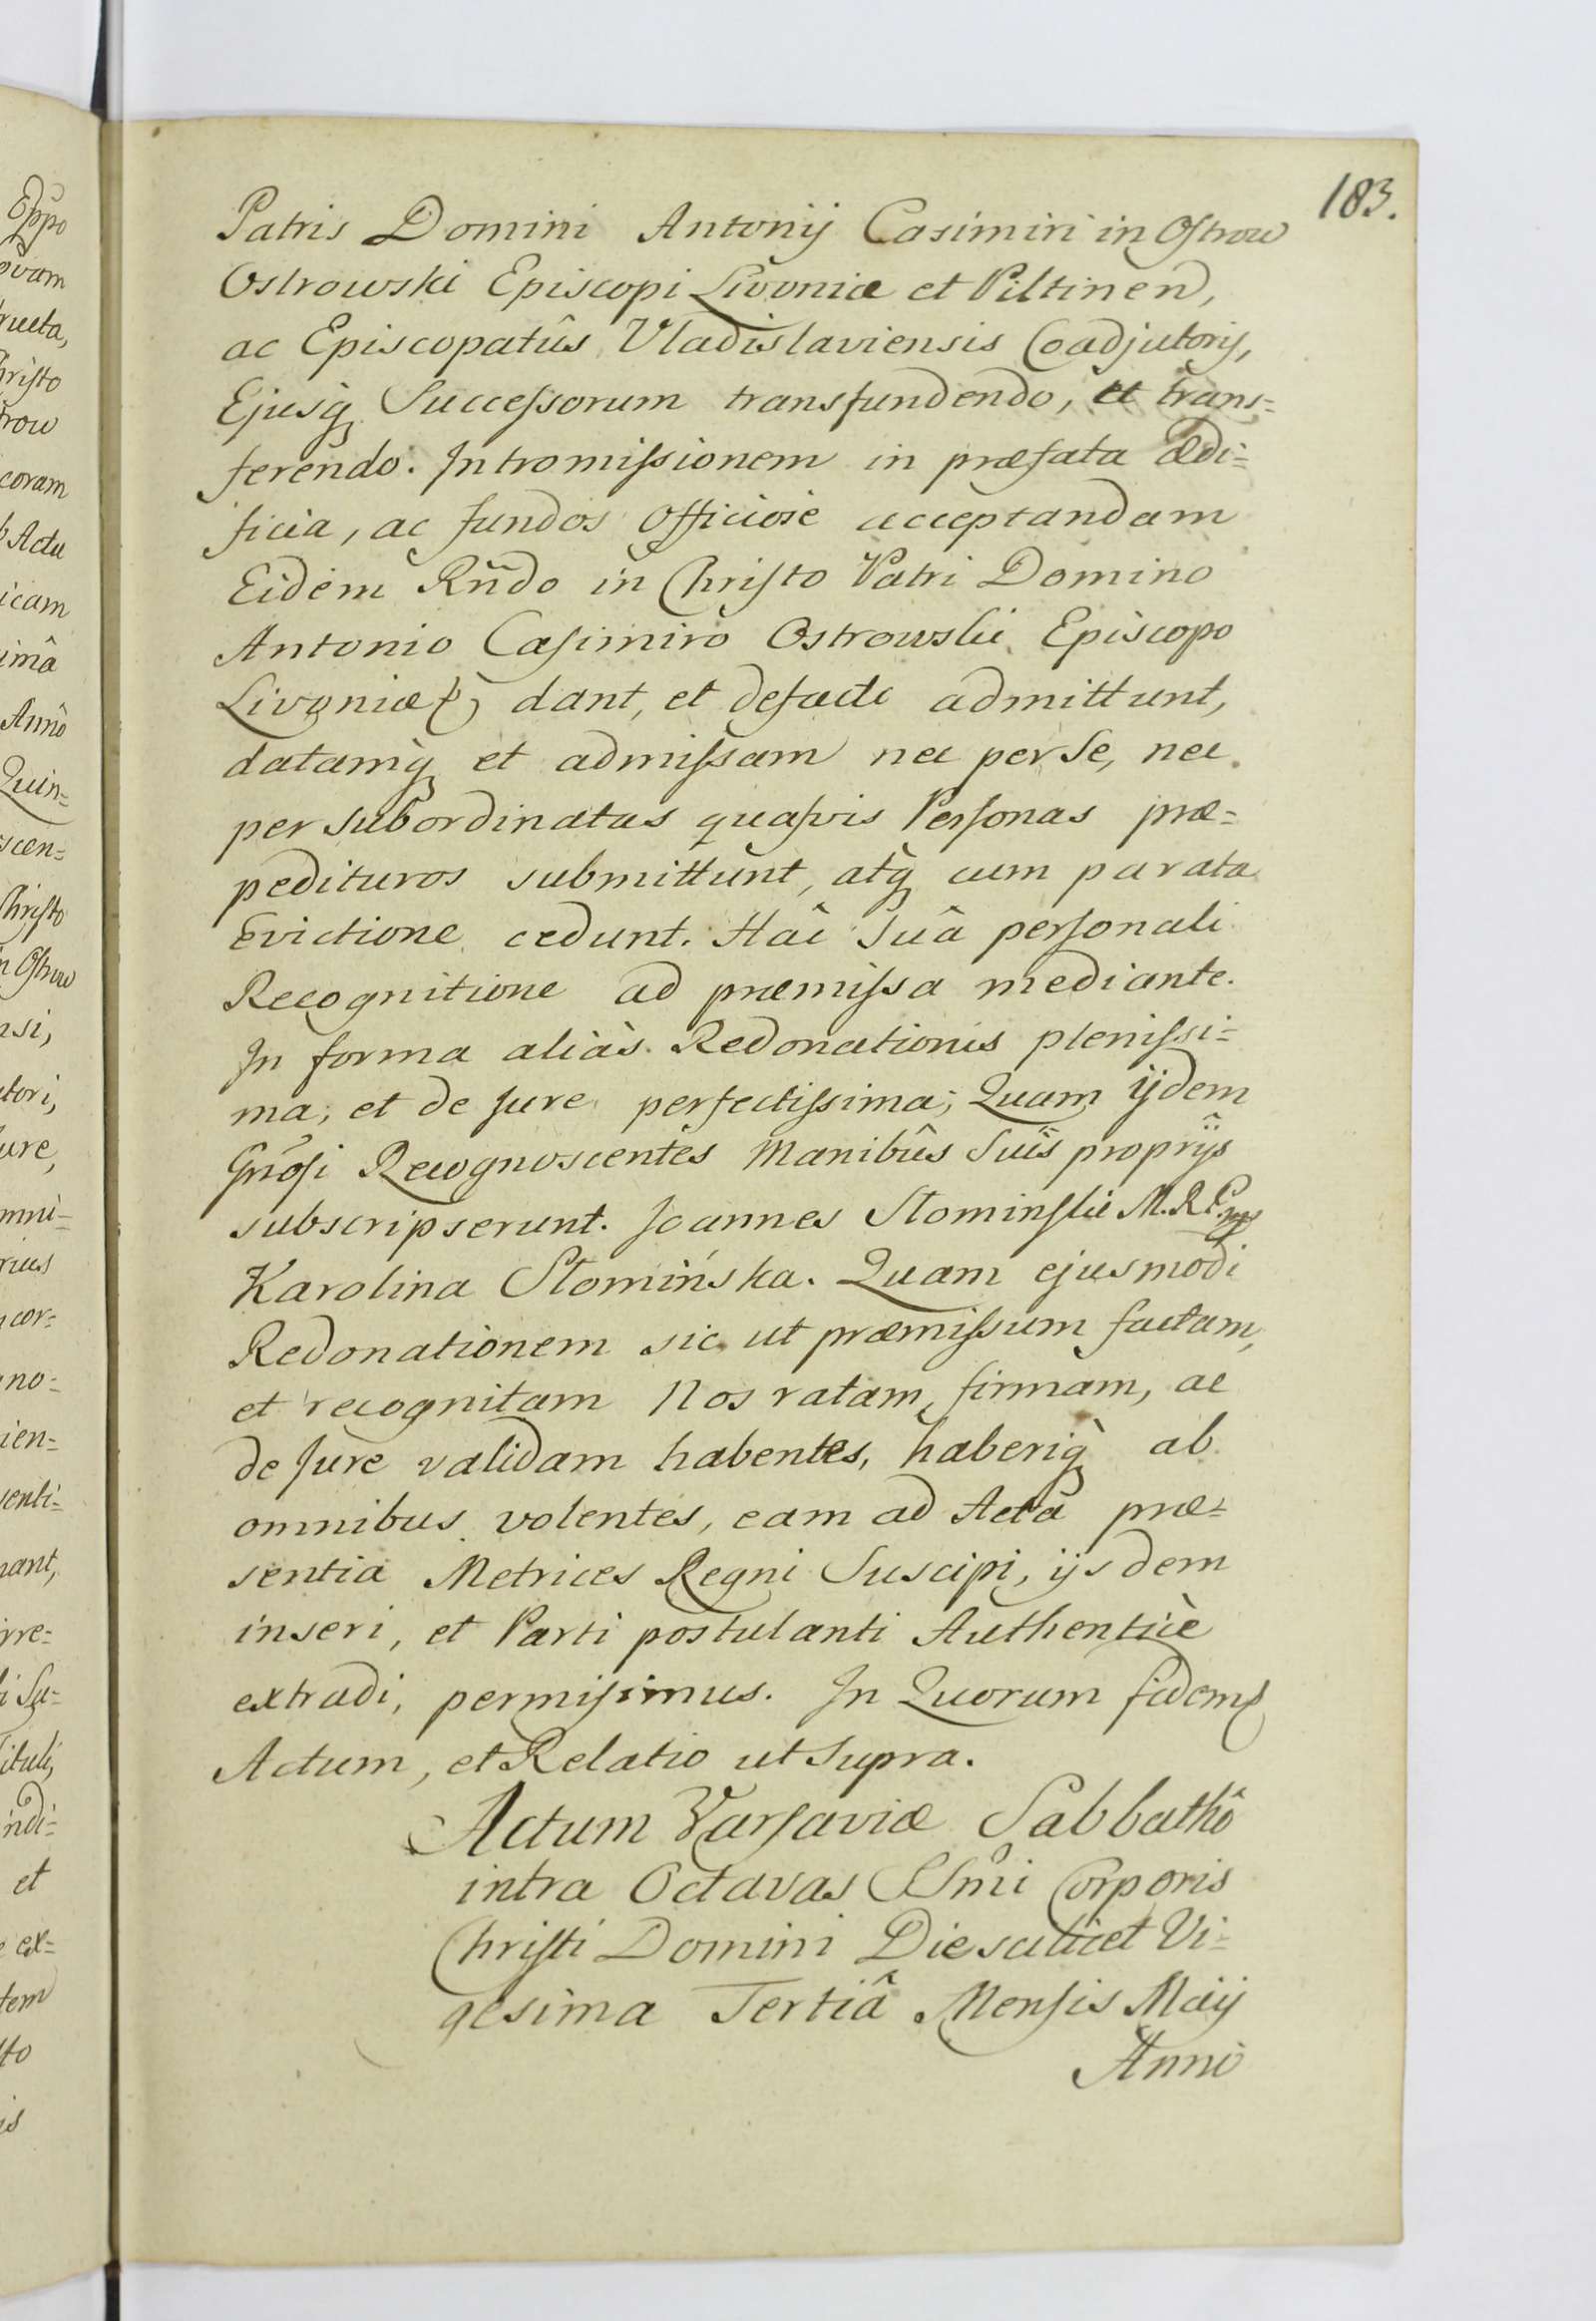 183.
Patris Domini Antonij Casimiri in Ostrow
Ostrowski Episcopi Livoniæ et Piltinen,
ac Episcopatûs Vladislaviensis Coadjutoris,
Ejusq̃ Successorum transfundendo, et trans=
ferendo. Intromissionem in præfata ædi=
ficia, ac fundos officiose acceptandam
Eidem Rñdo in Christo Patri Domino
Antonio Casimiro Ostrowski Episcopo
Livoniæ dant, et defacto admittunt,
datamq̃ et admissam nec per Se, nec
per subordinatas quasvis Personas præ=
pedituros submittunt, atq̃ cum parata
Evictione cedunt. Hâc Suâ personali
Recognitione ad præmissa mediante.
In forma aliàs Redonationis plenissi=
ma, et de Jure perfectissima; Quam ijdem
Gñosi Recognoscentes Manibûs Suis proprijs
subscripserunt. Joannes Słominski M.R.P. mp
Karolina Słomińska. Quam ejusmodi
Redonationem sic ut præmissum factam,
et recognitam Nos ratam, firmam, ac
de Jure validam habentes, haberiq̃ ab
omnibus volentes, eam ad Acta præ=
sentia Metrices Regni Suscipi, ijsdem
inseri, et Parti postulanti Authenticè
extradi, permisimus. In Quorum fidem
Actum, et Relatio ut Supra.
Actum Varsaviæ Sabbathô
intra Octavas SSmi Corporis
Christi Domini Die scilicet Vi=
gesima Tertiâ Mensis Maij
Anno